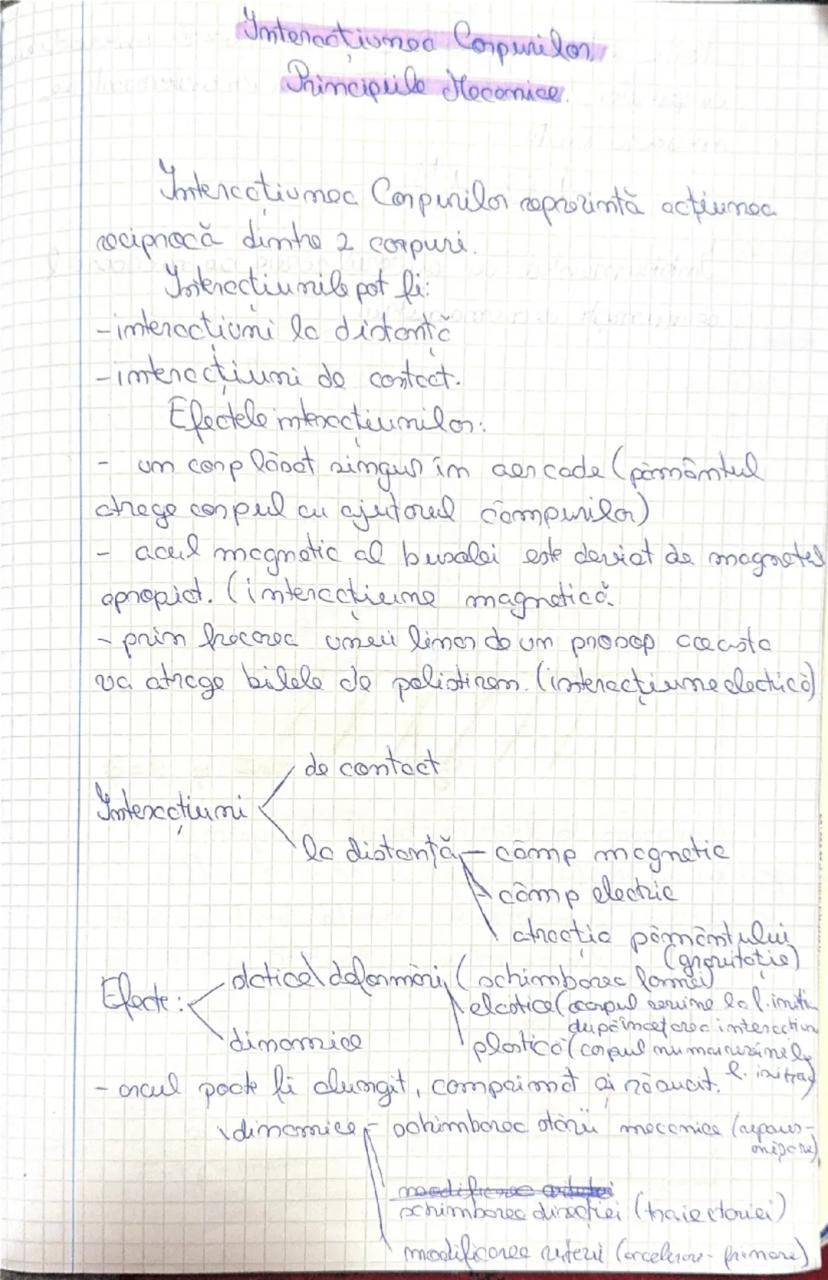 Interacțiunea Corpurilor
Principiile Mecanice.
Interacțiunea Corpurilor reprezintă acțiunea
reciprocă dintre 2 corpuri.
Interacțiunile pot fi:
- interacțiuni la distanță
- interacțiuni de contact.
Efectele interacțiunilor:
- un corp lăsat singur în aer cade (pământul
atrage corpul cu ajutorul câmpurilor)
- acul magnetic al busolei este deviat de magnetul
apropiat. (interacțiune magnetică.
- prin frecarea unei linii de un prosop aceasta
va atrage bilele de polistiren. (interacțiune electrică)
de contact
Interacțiuni
la distanță - câmp magnetic
câmp electric
atracția pământului
(gravitație)
Efecte: statice\ deformări (schimbarea formei)
elastice (corpul revine la f. iniți
după încetarea interacțiun
dinamice
plastică (corpul nu mai revine la
f. iniția)
- arcul poate fi alungit, comprimat și răsucit.
\dinamice - schimbarea stării mecanice (repaus-
mișcare)
schimbarea direcției (traiectoriei)
modificarea vitezei (accelerare - frânare)